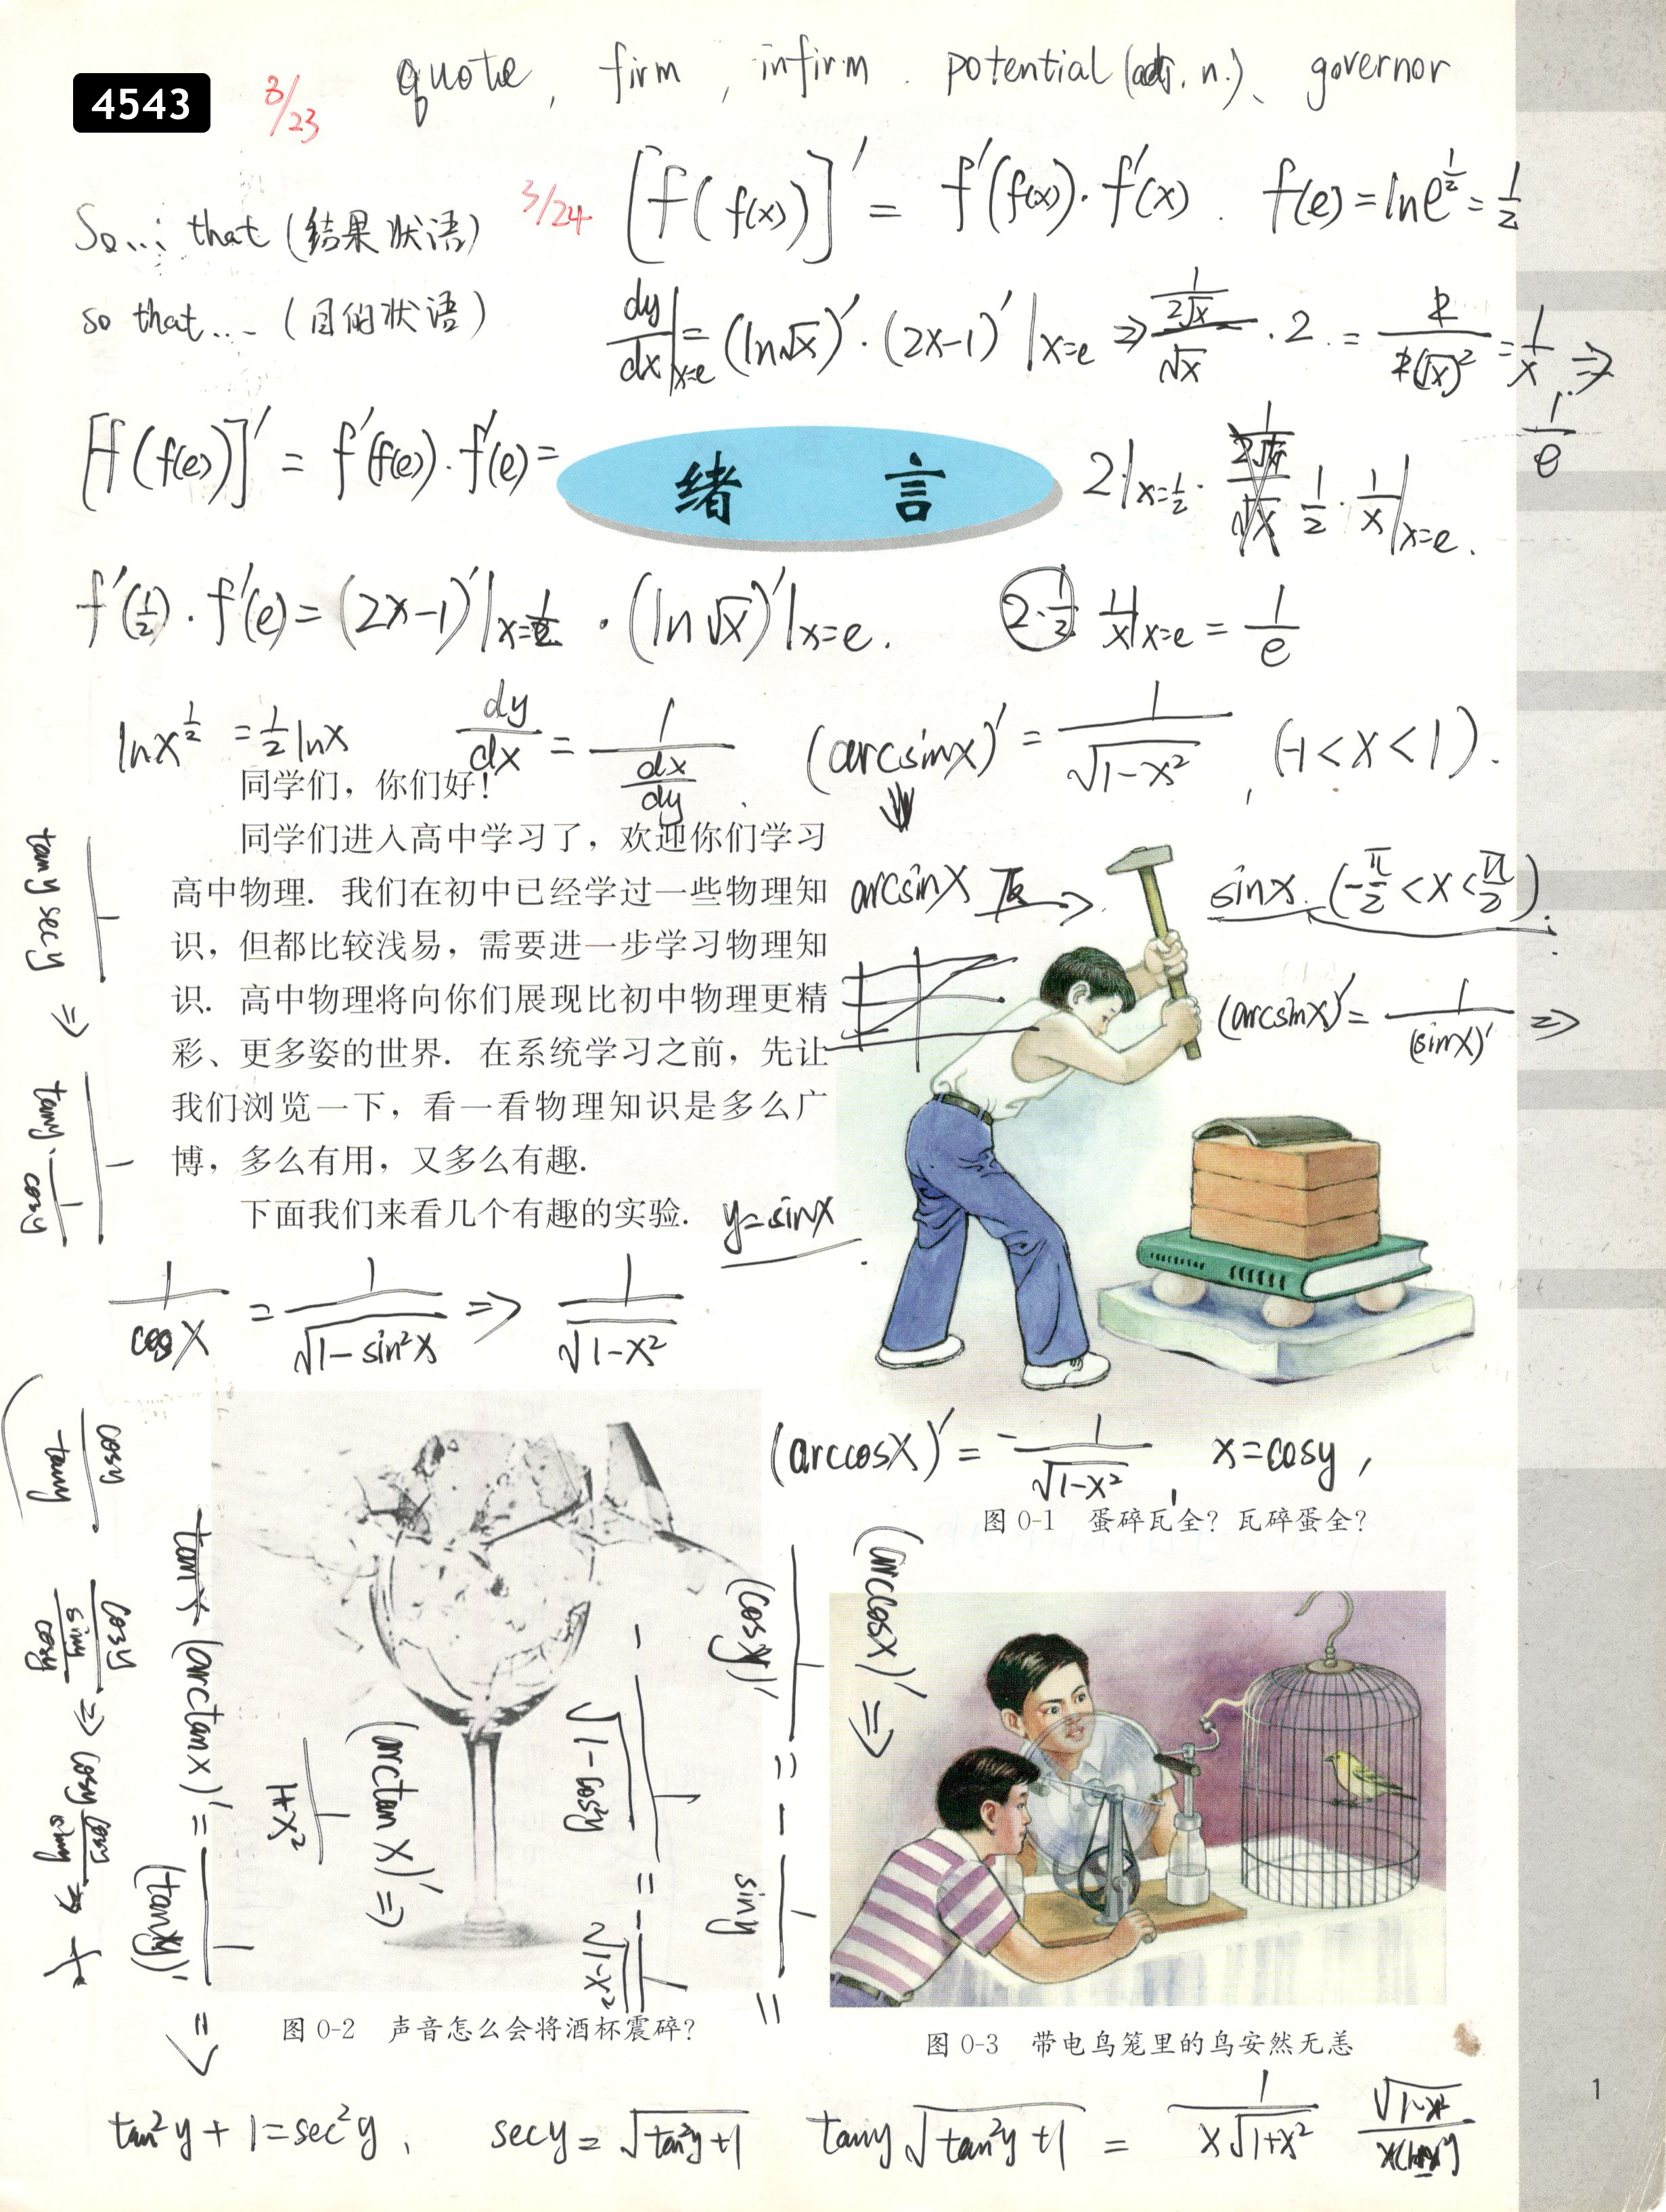 4543
3/23
quote, firm, infirm. potential (adj. n.)、governor
So...: that (结果状语)
3/24
[f(f(x))]′ = f′(f(x))·f′(x). f(e)=lne^{1/2}=1/2
so that... (目的状语)
dy/dx|x=e = (ln√x)′·(2x-1)′|x=e ⇒ (1/(2√x))/√x · 2 = 2/(2(√x)²) = 1/x ⇒ 1/e
[f(f(e))]′ = f′(f(e))·f′(e)=
绪 言
2|x=1/2 · 1/2 · 1/x|x=e.
f′(1/2)·f′(e)=(2x-1)′|x=1/2 · (ln√x)′|x=e.
2·1/2 1/x|x=e = 1/e
lnx^{1/2} = 1/2 lnx
dy/dx = 1/(dx/dy)
(arcsinx)′ = 1/√(1-x²), (-1<x<1).
同学们，你们好！
同学们进入高中学习了，欢迎你们学习
高中物理．我们在初中已经学过一些物理知
识，但都比较浅易，需要进一步学习物理知
识．高中物理将向你们展现比初中物理更精
彩、更多姿的世界．在系统学习之前，先让
我们浏览一下，看一看物理知识是多么广
博，多么有用，又多么有趣．
下面我们来看几个有趣的实验．
arcsinx 反→ sinx. (-π/2<x<π/2).
(arcsinx)′= 1/(sinx)′ ⇒
y=sinx
1/(tany secy) ⇒ 1/(tany·1/cosy)
1/cosx = 1/√(1-sin²x) ⇒ 1/√(1-x²)
(arccosx)′ = -1/√(1-x²), x=cosy,
图 0-1 蛋碎瓦全？瓦碎蛋全？
(arccosx)′ ⇒
1/(cosy)′ = -1/siny =
-1/√(1-cos²y) = -1/√(1-x²)
(arctanx)′ ⇒
1/(1+x²)
(arctanx)′ = 1/(tany)′ ⇒
cosy/tany
cosy/(siny/cosy) ⇒ cosy cosy/siny ⇒
图 0-2 声音怎么会将酒杯震碎？
图 0-3 带电鸟笼里的鸟安然无恙
tan²y+1=sec²y, secy=√(tan²y+1) tany√(tan²y+1) = 1/(x√(1+x²))
1